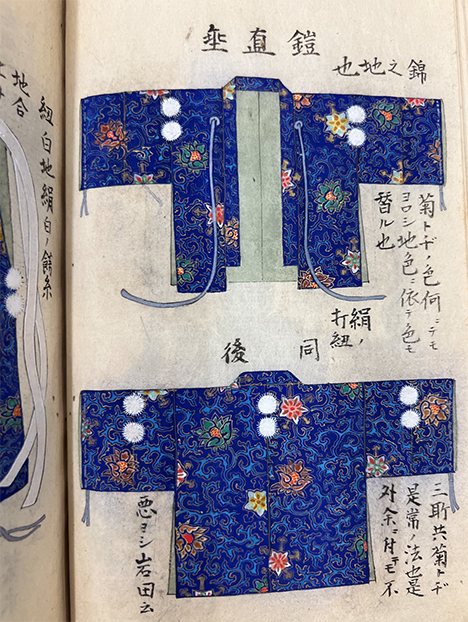 鎧直垂
錦之地也
菊トヂノ色何ニテモ
ヨロシ地色ニ依テ色モ
替ル也
絹ノ
打紐
同後
三所共菊トヂ
是常ノ法也是
外余ニ付テモ不
悪ヨシ岩田云
紐白地絹白ノ餝糸
地合